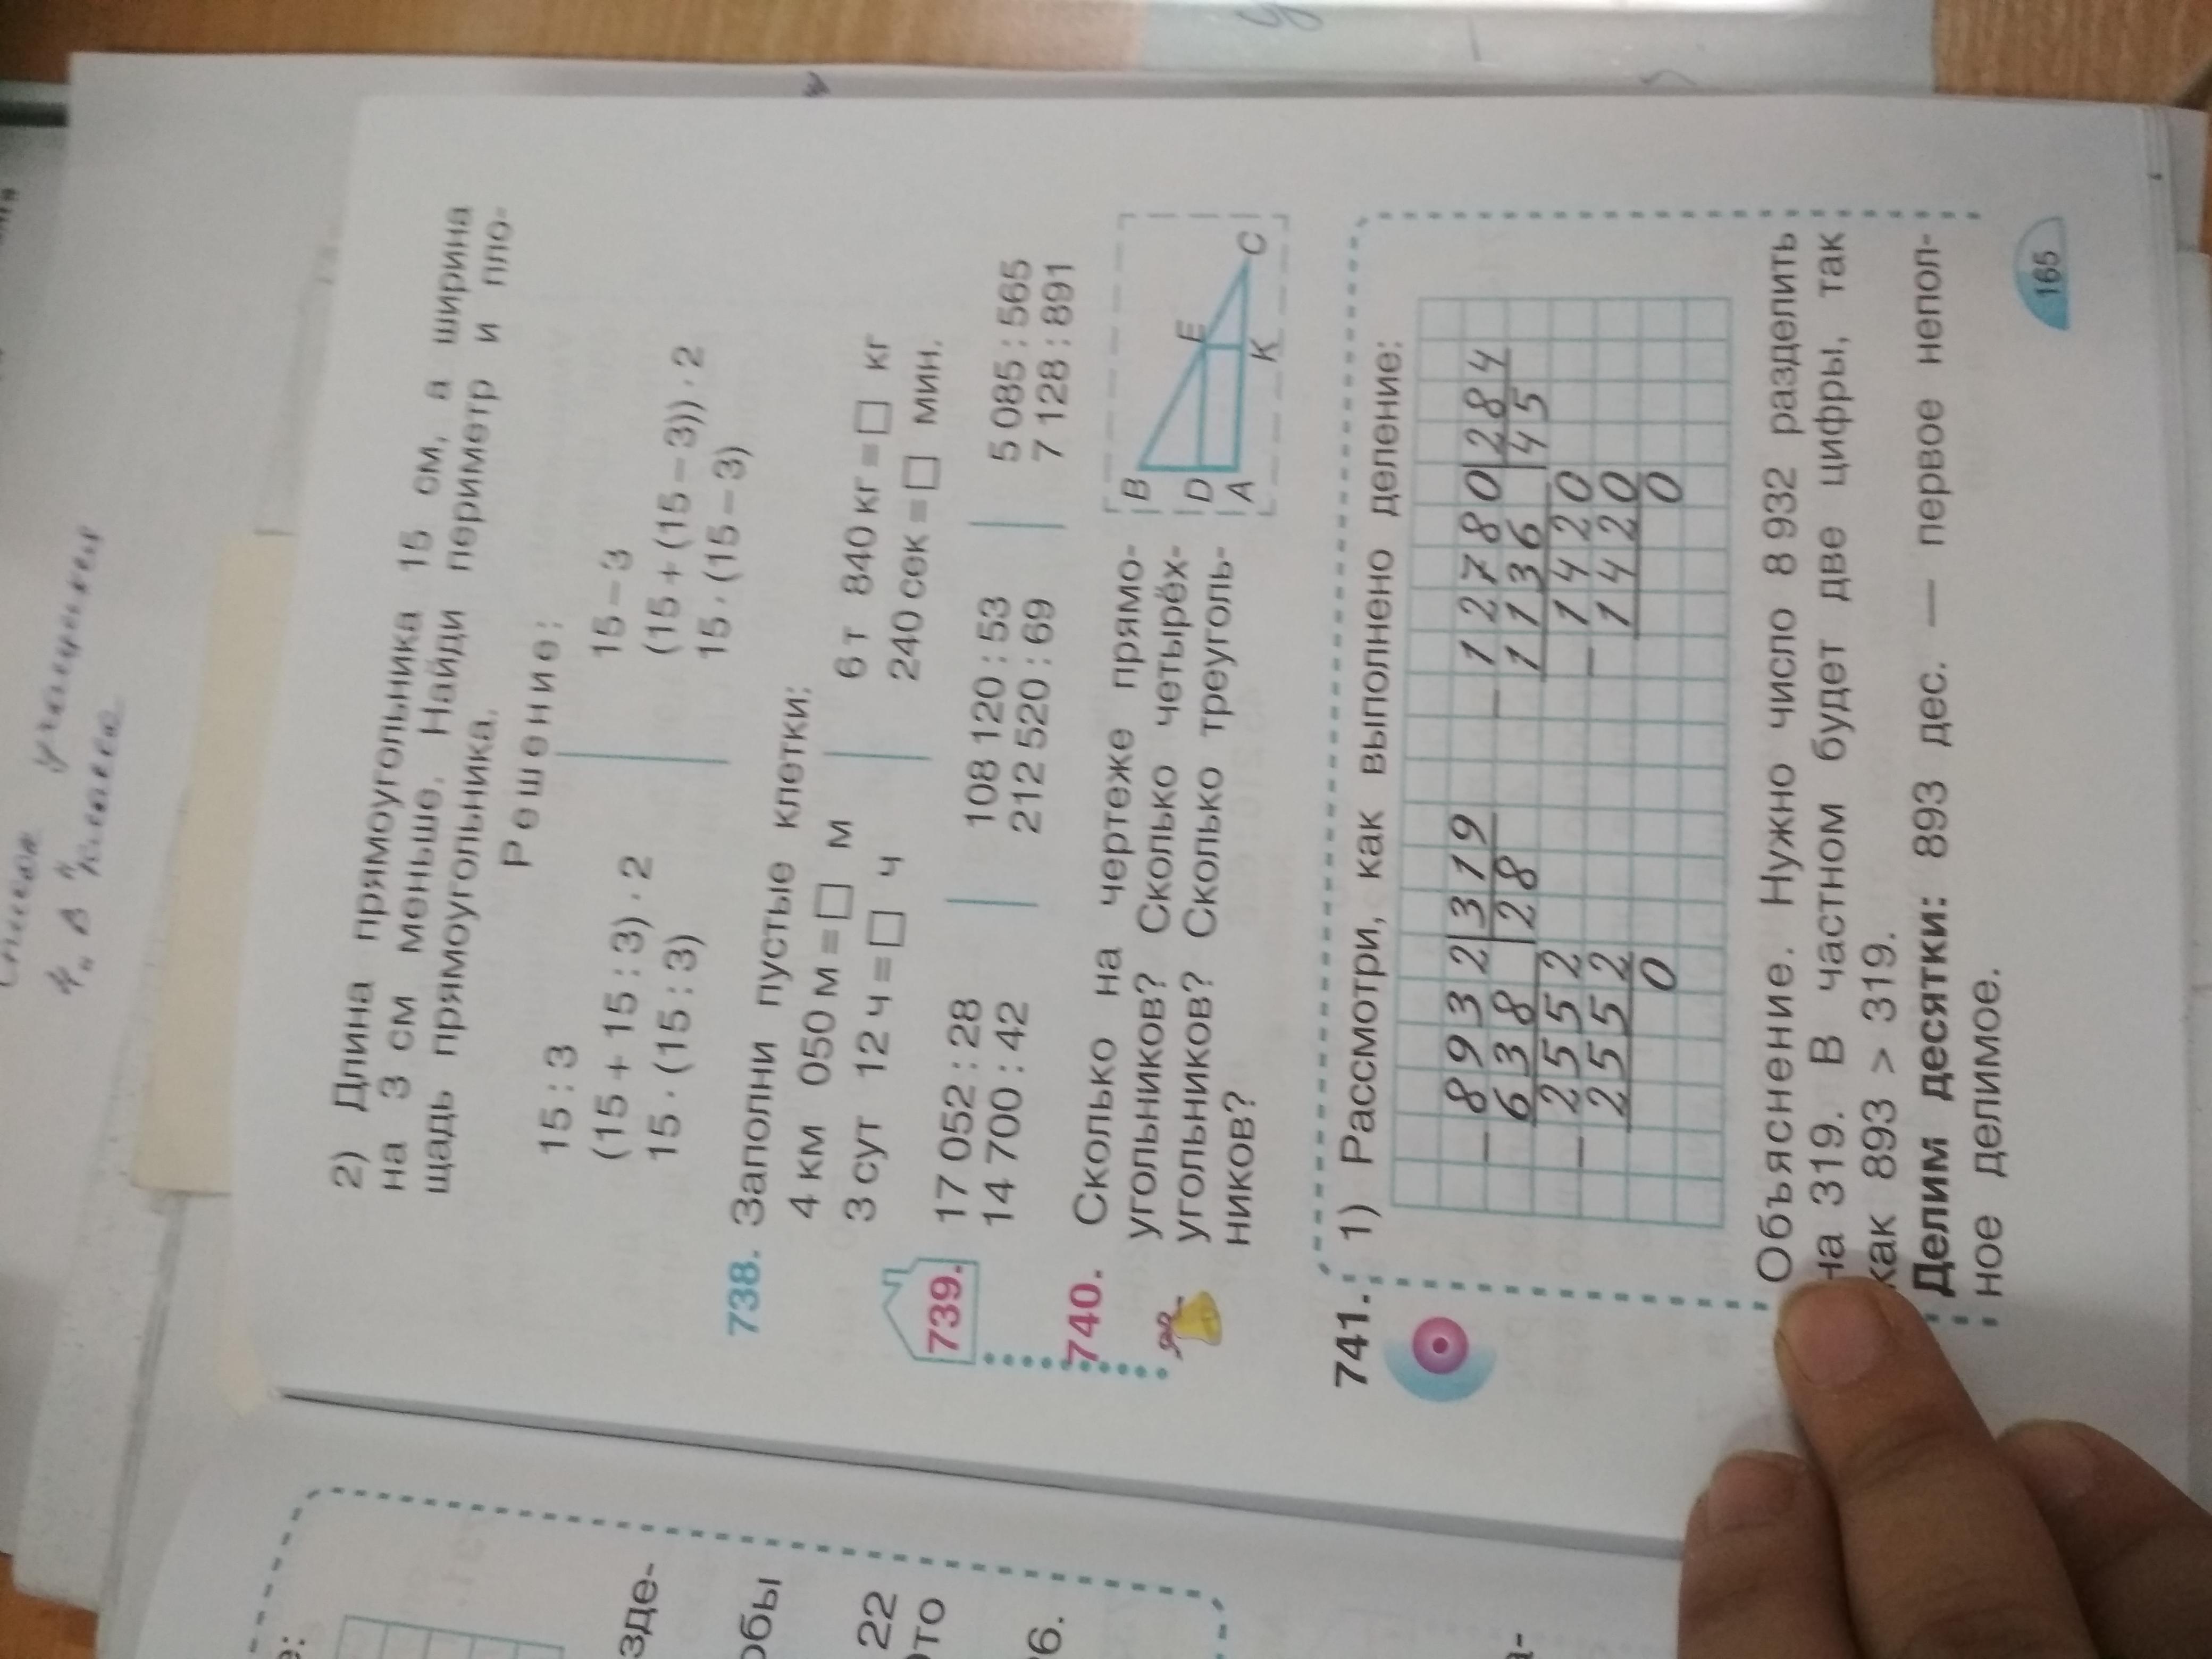 2) Длина прямоугольника 15 см, а ширина
на 3 см меньше. Найди периметр и пло-
щадь прямоугольника.
Решение:
15 : 3
15 − 3
(15 + 15 : 3) · 2
(15 + (15 − 3)) · 2
15 · (15 : 3)
15 · (15 − 3)
738. Заполни пустые клетки:
4 км 050 м = □ м
6 т 840 кг = □ кг
3 сут 12 ч = □ ч
240 сек = □ мин.
739. 17 052 : 28
108 120 : 53
5 085 : 565
14 700 : 42
212 520 : 69
7 128 : 891
740. Сколько на чертеже прямо-
угольников? Сколько четырёх-
угольников? Сколько треуголь-
ников?
B
D
A
E
K
C
741. 1) Рассмотри, как выполнено деление:
8932 319
− 638 28
2552
− 2552
0
12780 284
− 1136 45
1420
− 1420
0
Объяснение. Нужно число 8 932 разделить
на 319. В частном будет две цифры, так
как 893 > 319.
Делим десятки: 893 дес. — первое непол-
ное делимое.
165
е:
зде-
обы
22
это
6.
а-